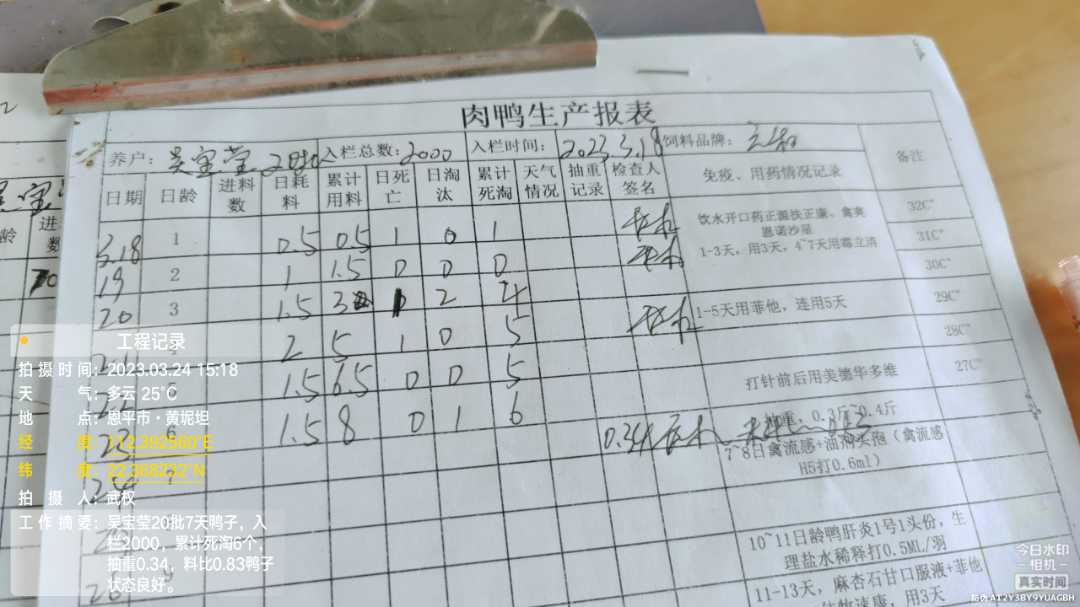 肉鸭生产报表
养户: 吴宝莹 20批 入栏总数: 2000 入栏时间: 2023.3.18 饲料品牌:
日期 日龄 进料数 日耗料 累计用料 日死亡 日淘汰 累计死淘 天气情况 抽重记录 检查人签名 免疫、用药情况记录 备注
3.18 1 0.5 0.5 1 0 1
19 2 1 1.5 0 0 0
20 3 1.5 3 2 4
2 5 1 0 5
1.5 6.5 0 0 5
23 6 1.5 8 0 1 6
24
0.34
饮水开口药正源扶正康、禽爽
恩诺沙星
1-3天，用3天，4~7天用霉立消
1-5天用菲他，连用5天
打针前后用美德华多维
抽重，0.3斤~0.4斤
7~8日禽流感+油剂（禽流感
H5打0.6ml）
10~11日龄鸭肝炎1号1头份，生
理盐水稀释打0.5ML/羽
11-13天，麻杏石甘口服液+菲他
用3天
32C°
31C°
30C°
29C°
28C°
27C°
工程记录
拍摄时间: 2023.03.24 15:18
天气: 多云 25℃
地点: 恩平市·黄坭坦
经度: 112.392560°E
纬度: 22.368232°N
拍摄人: 武权
工作摘要: 吴宝莹20批7天鸭子，入
栏2000，累计死淘6个，
抽重0.34，料比0.83鸭子
状态良好。
今日水印
-相机-
真实时间
防伪 AT2Y3BY9YUAGBH